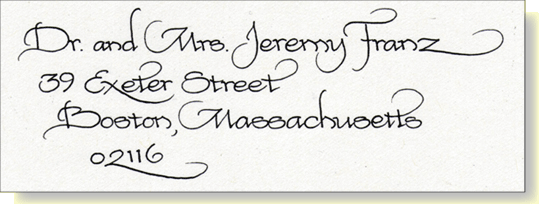 Dr. and Mrs. Jeremy Franz
39 Exeter Street
Boston, Massachusetts
02116